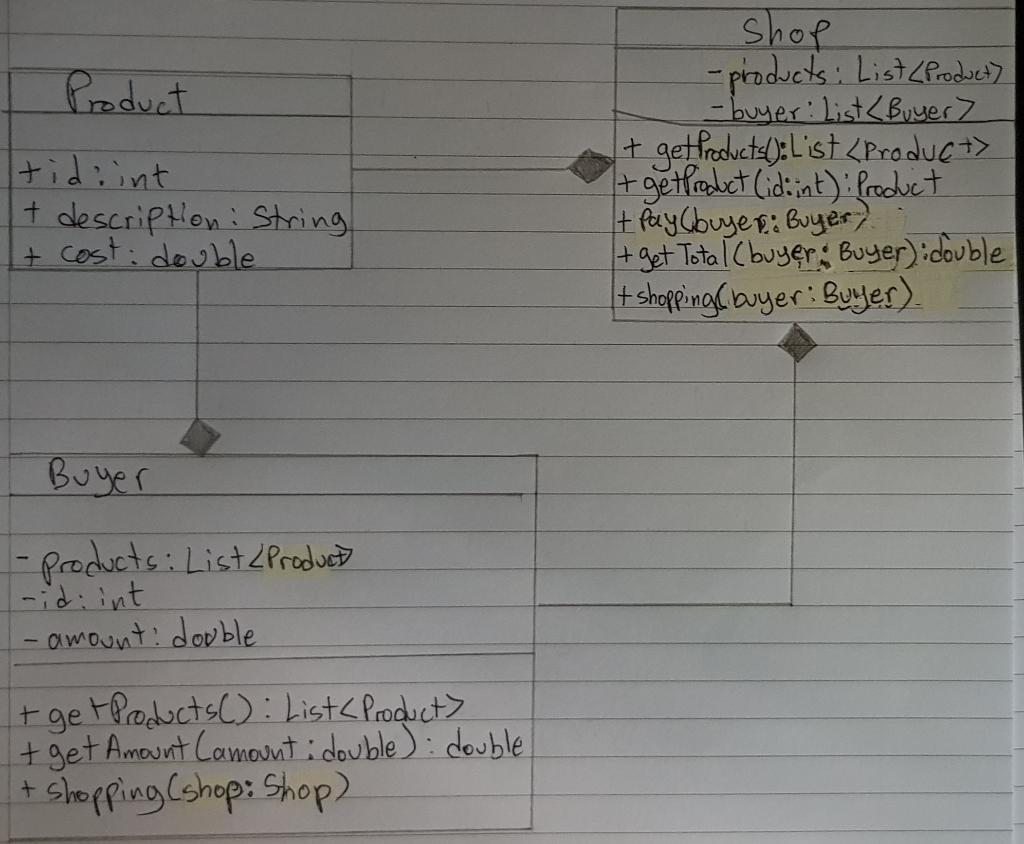 Product
+ id: int
+ description: String
+ cost: double
Shop
- products: List<Product>
- buyer: List<Buyer>
+ getProducts(): List<Product>
+ getProduct(id:int): Product
+ Pay(buyer: Buyer)
+ getTotal(buyer: Buyer): double
+ shopping(buyer: Buyer)
Buyer
- products: List<Product>
- id: int
- amount: double
+ getProducts(): List<Product>
+ getAmount(amount: double): double
+ shopping(shop: Shop)